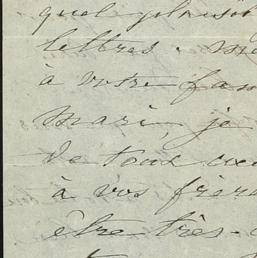 quel plaisir
lettres. me
à votre fam
mari, je
de tous
à vos frère
être très-